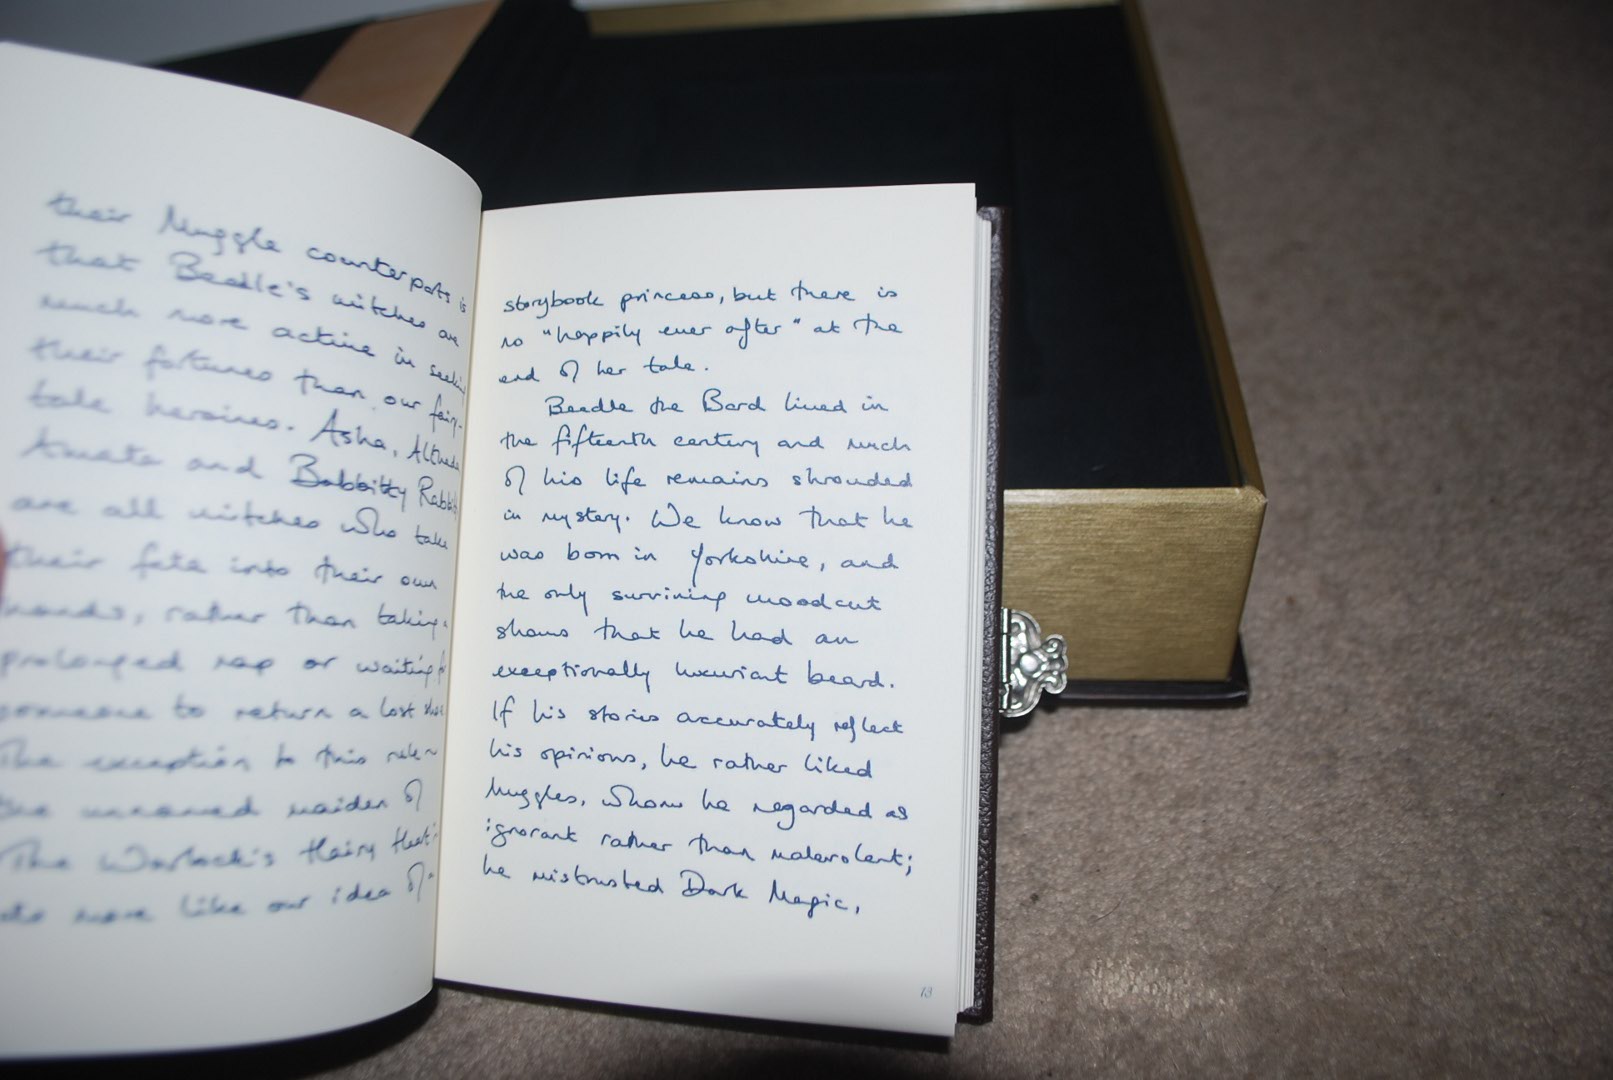 their Muggle counterparts is
that Beedle's witches are
much more active in seeking
their fortunes than our fairy-
tale heroines. Asha, Altheda,
Amata and Babbitty Rabbitty
are all witches who take
their fate into their own
hands, rather than taking a
prolonged nap or waiting for
someone to return a lost shoe.
The exception to this rule -
the unnamed maiden of
"The Warlock's Hairy Heart" -
acts more like our idea of a
storybook princess, but there is
no "happily ever after" at the
end of her tale.
Beedle the Bard lived in
the fifteenth century and much
of his life remains shrouded
in mystery. We know that he
was born in Yorkshire, and
the only surviving woodcut
shows that he had an
exceptionally luxuriant beard.
If his stories accurately reflect
his opinions, he rather liked
Muggles, whom he regarded as
ignorant rather than malevolent;
he mistrusted Dark Magic,
13